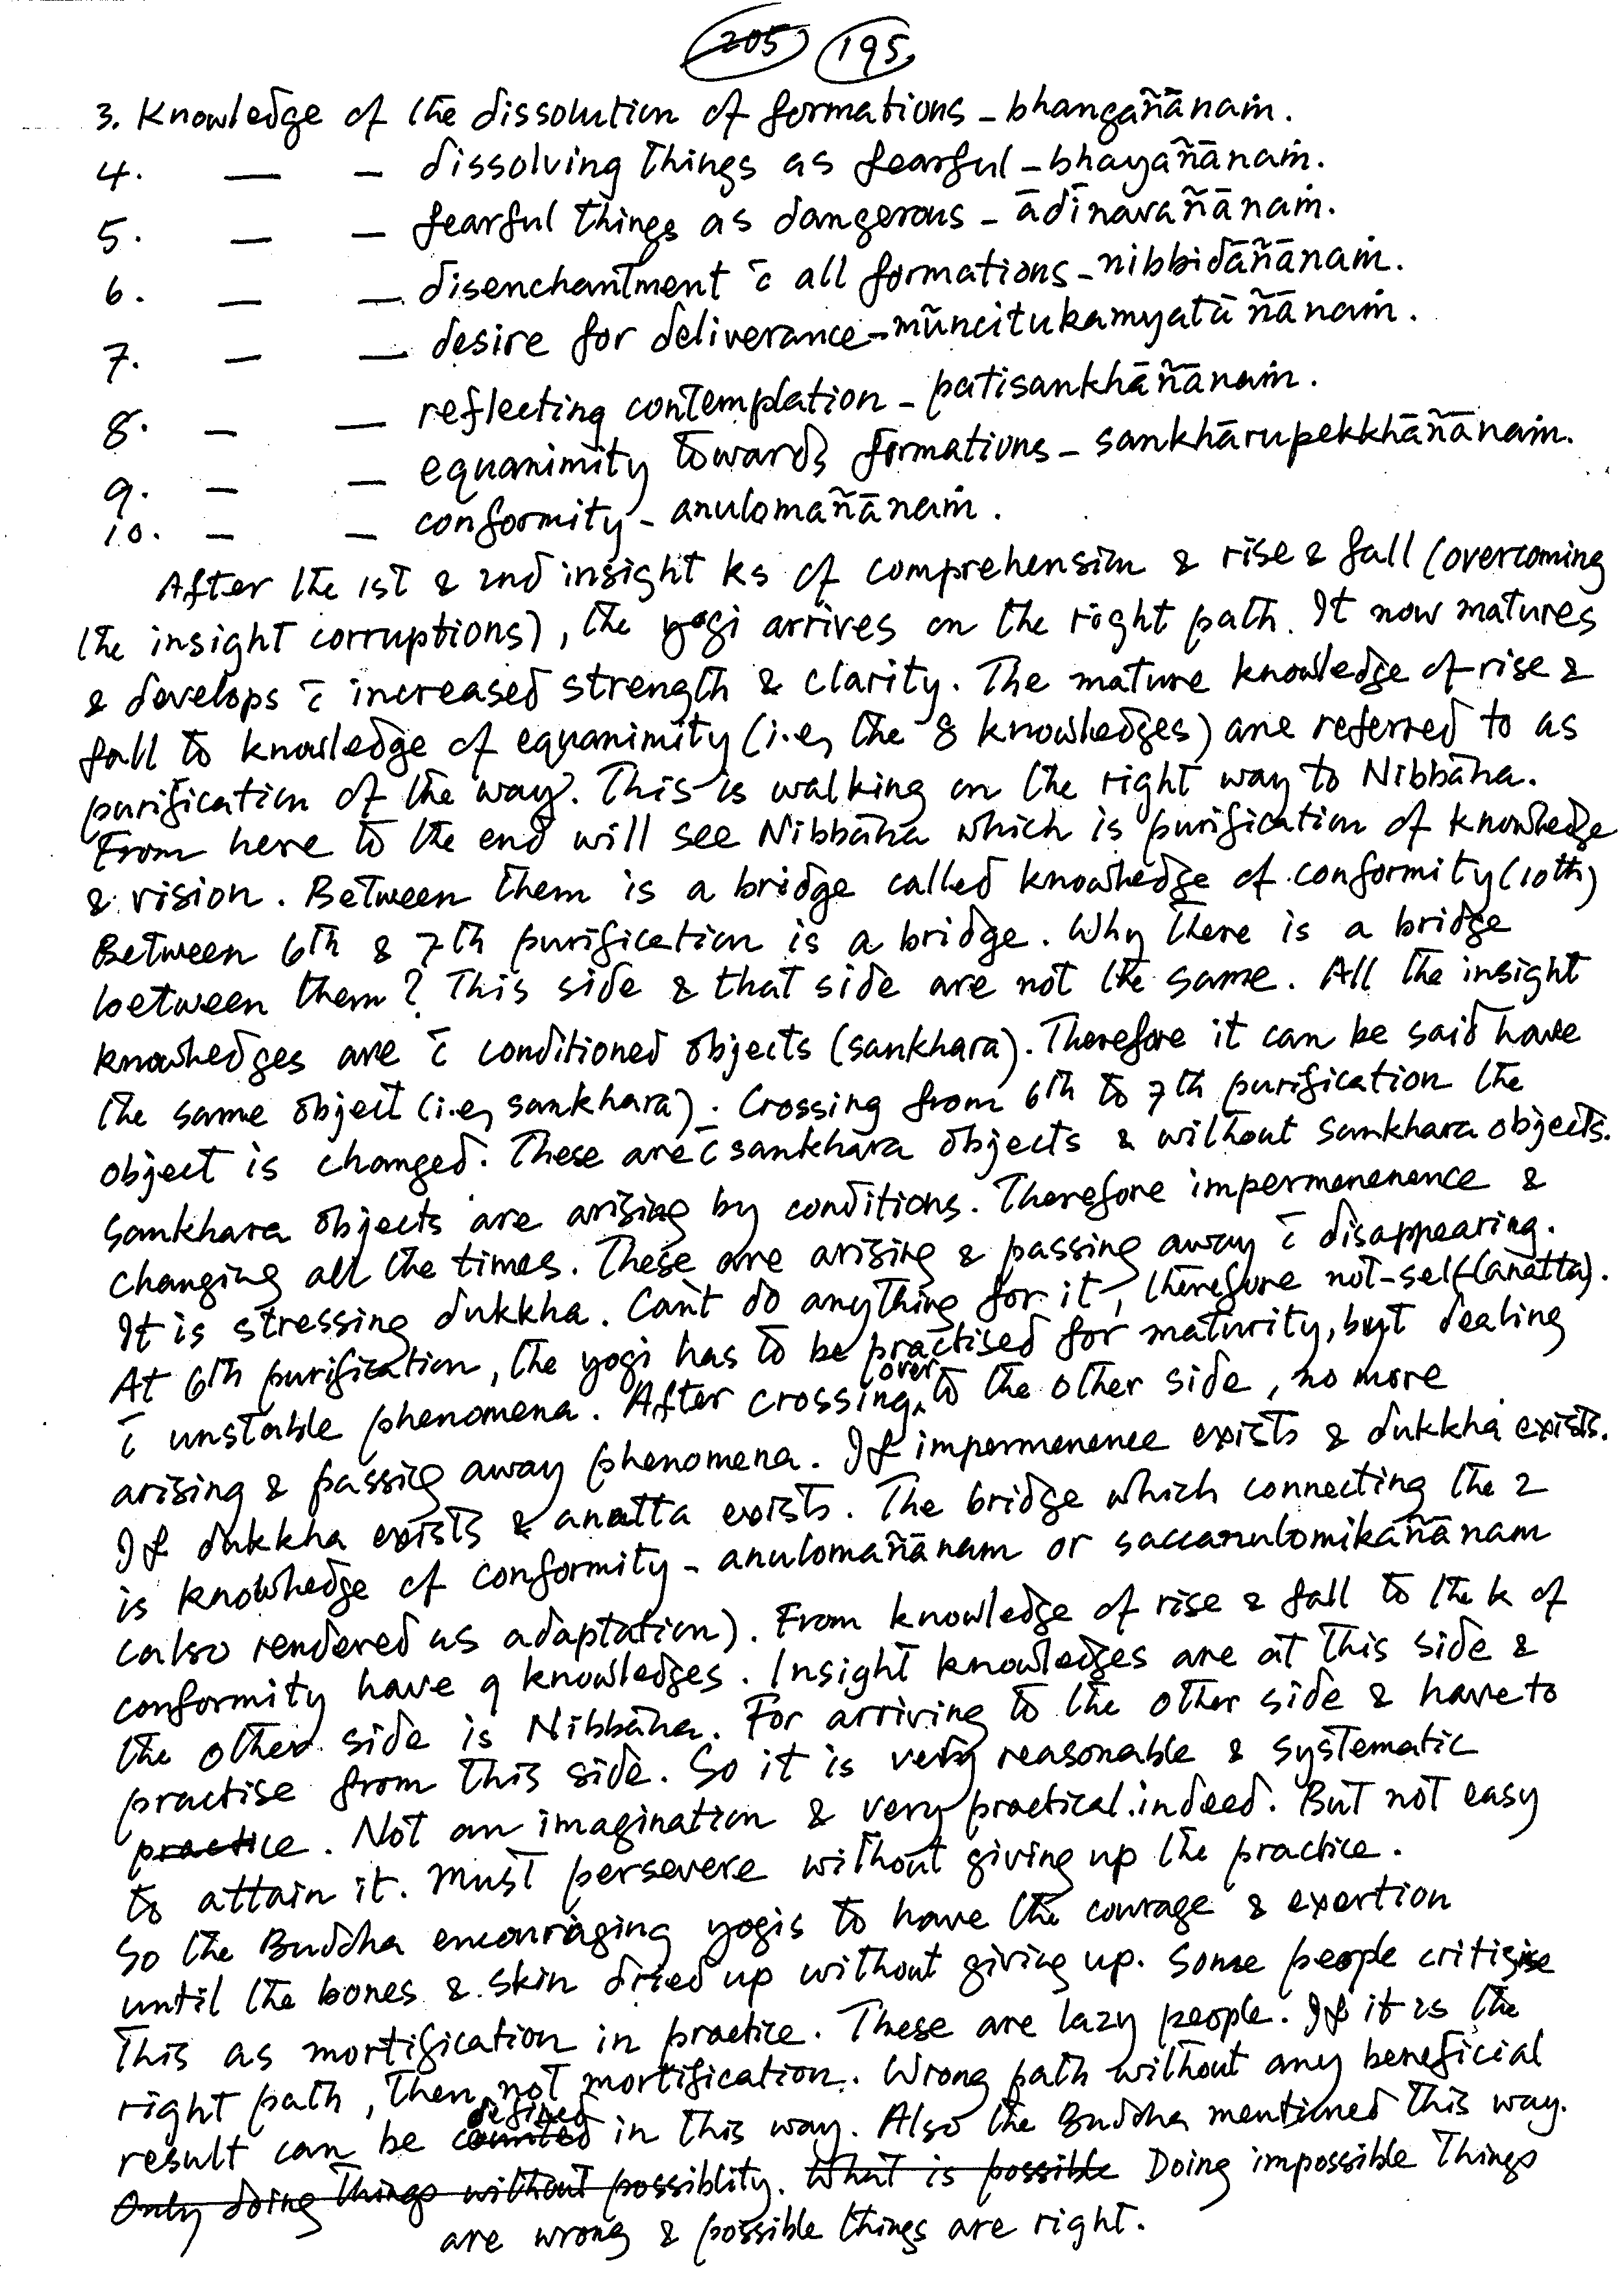 205 195
3. Knowledge of the dissolution of formations – bhangañānaṁ.
4. — – dissolving things as fearful – bhayañānaṁ.
5. — – fearful things as dangerous – ādīnavañānaṁ.
6. — — disenchantment c̄ all formations – nibbidāñānaṁ.
7. — — desire for deliverance – mūncitukamyatāñānaṁ.
8. – — reflecting contemplation – patisankhāñānaṁ.
9. – — equanimity towards formations – sankhārupekkhāñānaṁ.
10. – — conformity – anulomañānaṁ.
After the 1st & 2nd insight ks of comprehension & rise & fall (overcoming
the insight corruptions), the yogi arrives on the right path. It now matures
& develops c̄ increased strength & clarity. The mature knowledge of rise &
fall to knowledge of equanimity (i.e, the 8 knowledges) are referred to as
purification of the way. This is walking on the right way to Nibbāna.
From here to the end will see Nibbāna which is purification of knowledge
& vision. Between them is a bridge called knowledge of conformity (10th)
Between 6th & 7th purification is a bridge. Why there is a bridge
between them? This side & that side are not the same. All the insight
knowledges are c̄ conditioned objects (sankhara). Therefore it can be said have
the same object (i.e, sankhara). Crossing from 6th to 7th purification the
object is changed. These are c̄ sankhāra objects & without sankhara objects.
Sankhara objects are arising by conditions. Therefore impermenenence &
changing all the times. These are arising & passing away c̄ disappearing.
It is stressing dukkha. Can't do anything for it, therefore not-self (anatta).
At 6th purification, the yogi has to be practised for maturity, but dealing
c̄ unstable phenomena. After crossing over to the other side, no more
arising & passig away phenomena. If impermenence exists & dukkha exists.
If dukkha exists & anatta exists. The bridge which connecting the 2
is knowledge of conformity – anulomañānam or saccanulomikañānam
(also rendered as adaptation). From knowledge of rise & fall to the k of
conformity have 9 knowledges. Insight knowledges are at this side &
the other side is Nibbāna. For arriving to the other side & have to
practise from this side. So it is very reasonable & systematic
practice. Not an imagination & very practical indeed. But not easy
to attain it. Must persevere without giving up the practice.
So the Buddha encouraging yogis to have the courage & exertion
until the bones & skin dried up without giving up. Some people critisise
this as mortification in practice. These are lazy people. If it is the
right path, then not mortification. Wrong path without any beneficial
result can be counted defined in this way. Also the Buddha mentioned this way.
Only doing things without possiblity. What is possible Doing impossible things
are wrong & possible things are right.